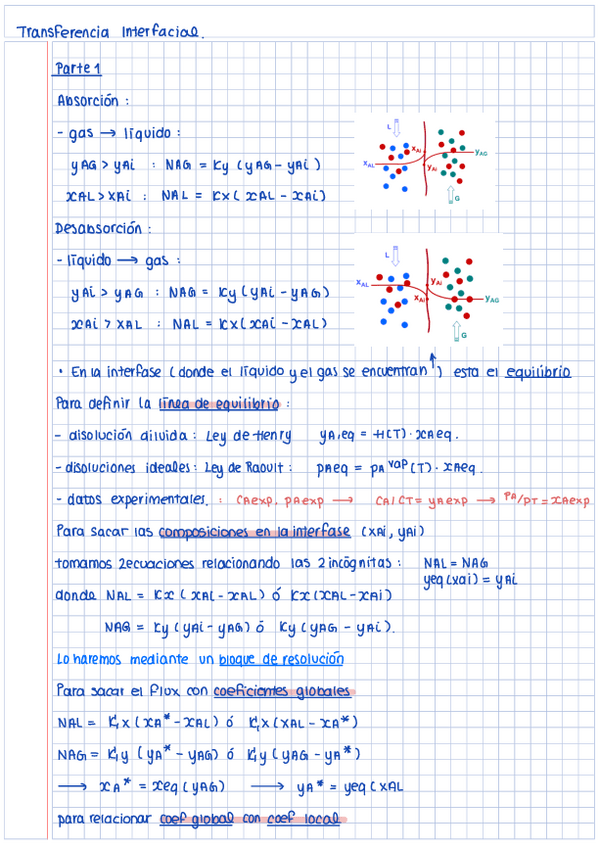 Transferencia Interfacial.
Parte 1
Absorción :
- gas → líquido :
yAG > yAi : NAG = Ky (yAG - yAi)
xAL > xAi : NAL = Kx (xAL - xAi)
L
xAL
xAi
yAi
yAG
G
Desabsorción :
- líquido → gas :
yAi > yAG : NAG = Ky (yAi - yAG)
xAi > xAL : NAL = Kx (xAi - xAL)
L
xAL
xAi
yAi
yAG
G
• En la interfase (donde el líquido y el gas se encuentran ↑) esta el equilibrio
Para definir la línea de equilibrio :
- disolución diluida : Ley de Henry yA,eq = H(T) · xAeq.
- disoluciones ideales : Ley de Raoult : pAeq = pA vap (T) · xAeq.
- datos experimentales. : CAexp, pAexp → CA/CT = yAexp → PA/PT = xAexp
Para sacar las composiciones en la interfase (xAi, yAi)
tomamos 2 ecuaciones relacionando las 2 incógnitas : NAL = NAG
yeq (xAi) = yAi
donde NAL = Kx (xAi - xAL) ó Kx (xAL - xAi)
NAG = Ky (yAi - yAG) ó Ky (yAG - yAi).
Lo haremos mediante un bloque de resolución
Para sacar el flux con coeficientes globales
NAL = KGx (xA* - xAL) ó KGx (xAL - xA*)
NAG = KGy (yA* - yAG) ó KGy (yAG - yA*)
→ xA* = xeq (yAG) → yA* = yeq (xAL
para relacionar coef global con coef local